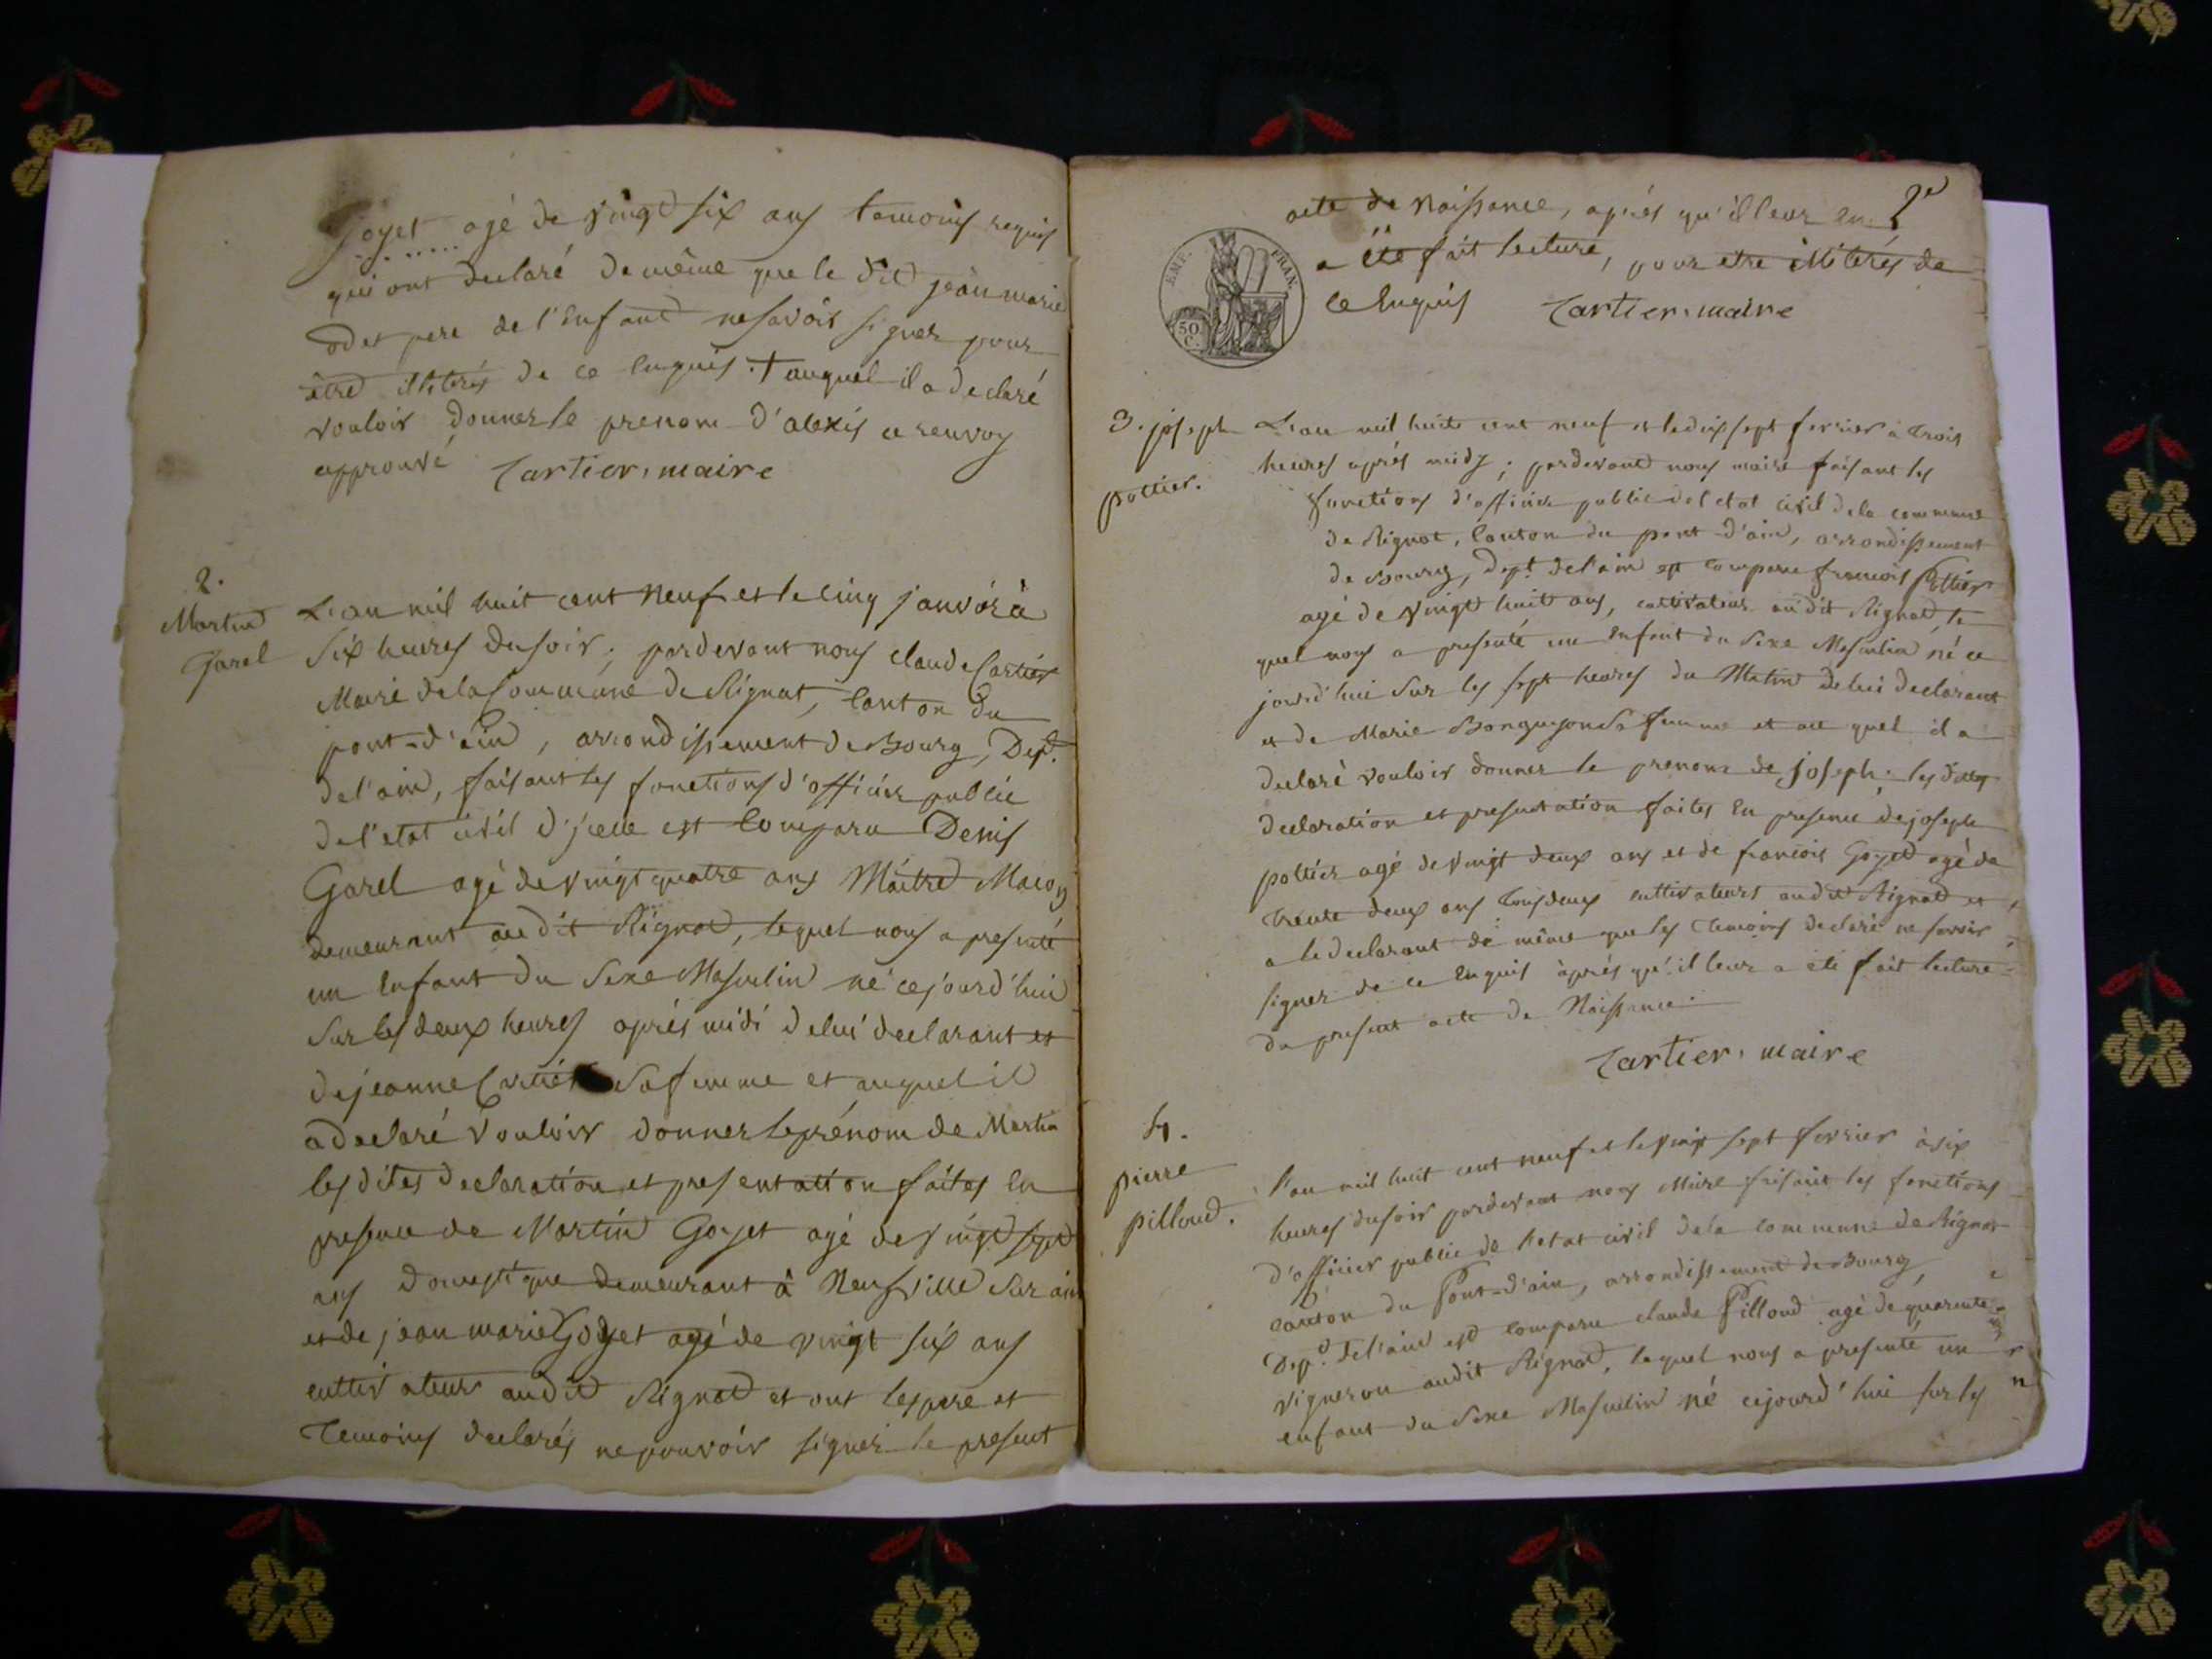 Goyet agé de vingt six ans temoins requis
qui ont declaré de même que le dit jean marie
odet pere de l'enfant ne savoir signer pour
être illiterés de ce enquis. + auquel il a declaré
vouloir donner le prenom d'alexis ce renvoy
approuvé Cartier, maire
2.
Martin
Garel
L'an mil huit cent neuf et le cinq janvier à
six heures du soir; pardevant nous claude Cartier
Maire de la Commune de Rignat, Canton du
pont-d'ain, arrondissement de Bourg, Dept.
de l'ain, faisant les fonctions d'officier public
de l'etat civil d'jcelle est comparu Denis
Garel agé de vingt quatre ans Maitre Macon
demeurant au dit Rignat, lequel nous a presenté
un enfant du sexe Masculin né cejourd'hui
sur les deux heures après midi de lui declarant et
de jeanne Cartier sa femme et auquel il
a declaré vouloir donner le prénom de Martin
les dites declaration et presentation faites en
presence de Martin Goyet agé de vingt sept
ans domestique demeurant à Neufville sur ain
et de jean marie Goyet agé de vingt six ans
cultivateur audit Rignat et ont les pere et
temoins declarés ne pouvoir signer le present
2e
acte de Naissance, après qu'il leur en
a été fait lecture, pour etre illiterés de
ce enquis Cartier, maire
EMP. FRAN.
50
C.
3. joseph
pottier.
L'an mil huit cent neuf et le dix sept fevrier à trois
heures après midy; pardevant nous maire faisant les
fonctions d'officier public de l'etat civil de la commune
de Rignat, Canton du pont-d'ain, arrondissement
de Bourg, Dept. de l'ain est comparu francois Pottier
agé de vingt huit ans, cultivateur audit Rignat, le
quel nous a presenté un enfant du sexe Masculin né ce
jourd'hui sur les sept heures du Matin de lui declarant
et de Marie sa femme et au quel il a
declaré vouloir donner le prenom de joseph; les dites
declaration et presentation faites en presence de joseph
pottier agé de vingt deux ans et de francois Goyet agé de
trente deux ans tous deux cultivateurs audit Rignat et
a le declarant de même que les temoins declaré ne savoir
signer de ce enquis après qu'il leur a été fait lecture
du present acte de Naissance.
Cartier, maire
4.
pierre
pilloud.
l'an mil huit cent neuf et le vingt sept fevrier à six
heures du soir pardevant nous Maire faisant les fonctions
d'officier public de l'etat civil de la commune de Rignat
canton du Pont-d'ain, arrondissement de Bourg,
Dept. de l'ain est comparu claude Pilloud agé de quarante
vigneron audit Rignat, lequel nous a presenté un
enfant du sexe Masculin né cejourd'hui sur les